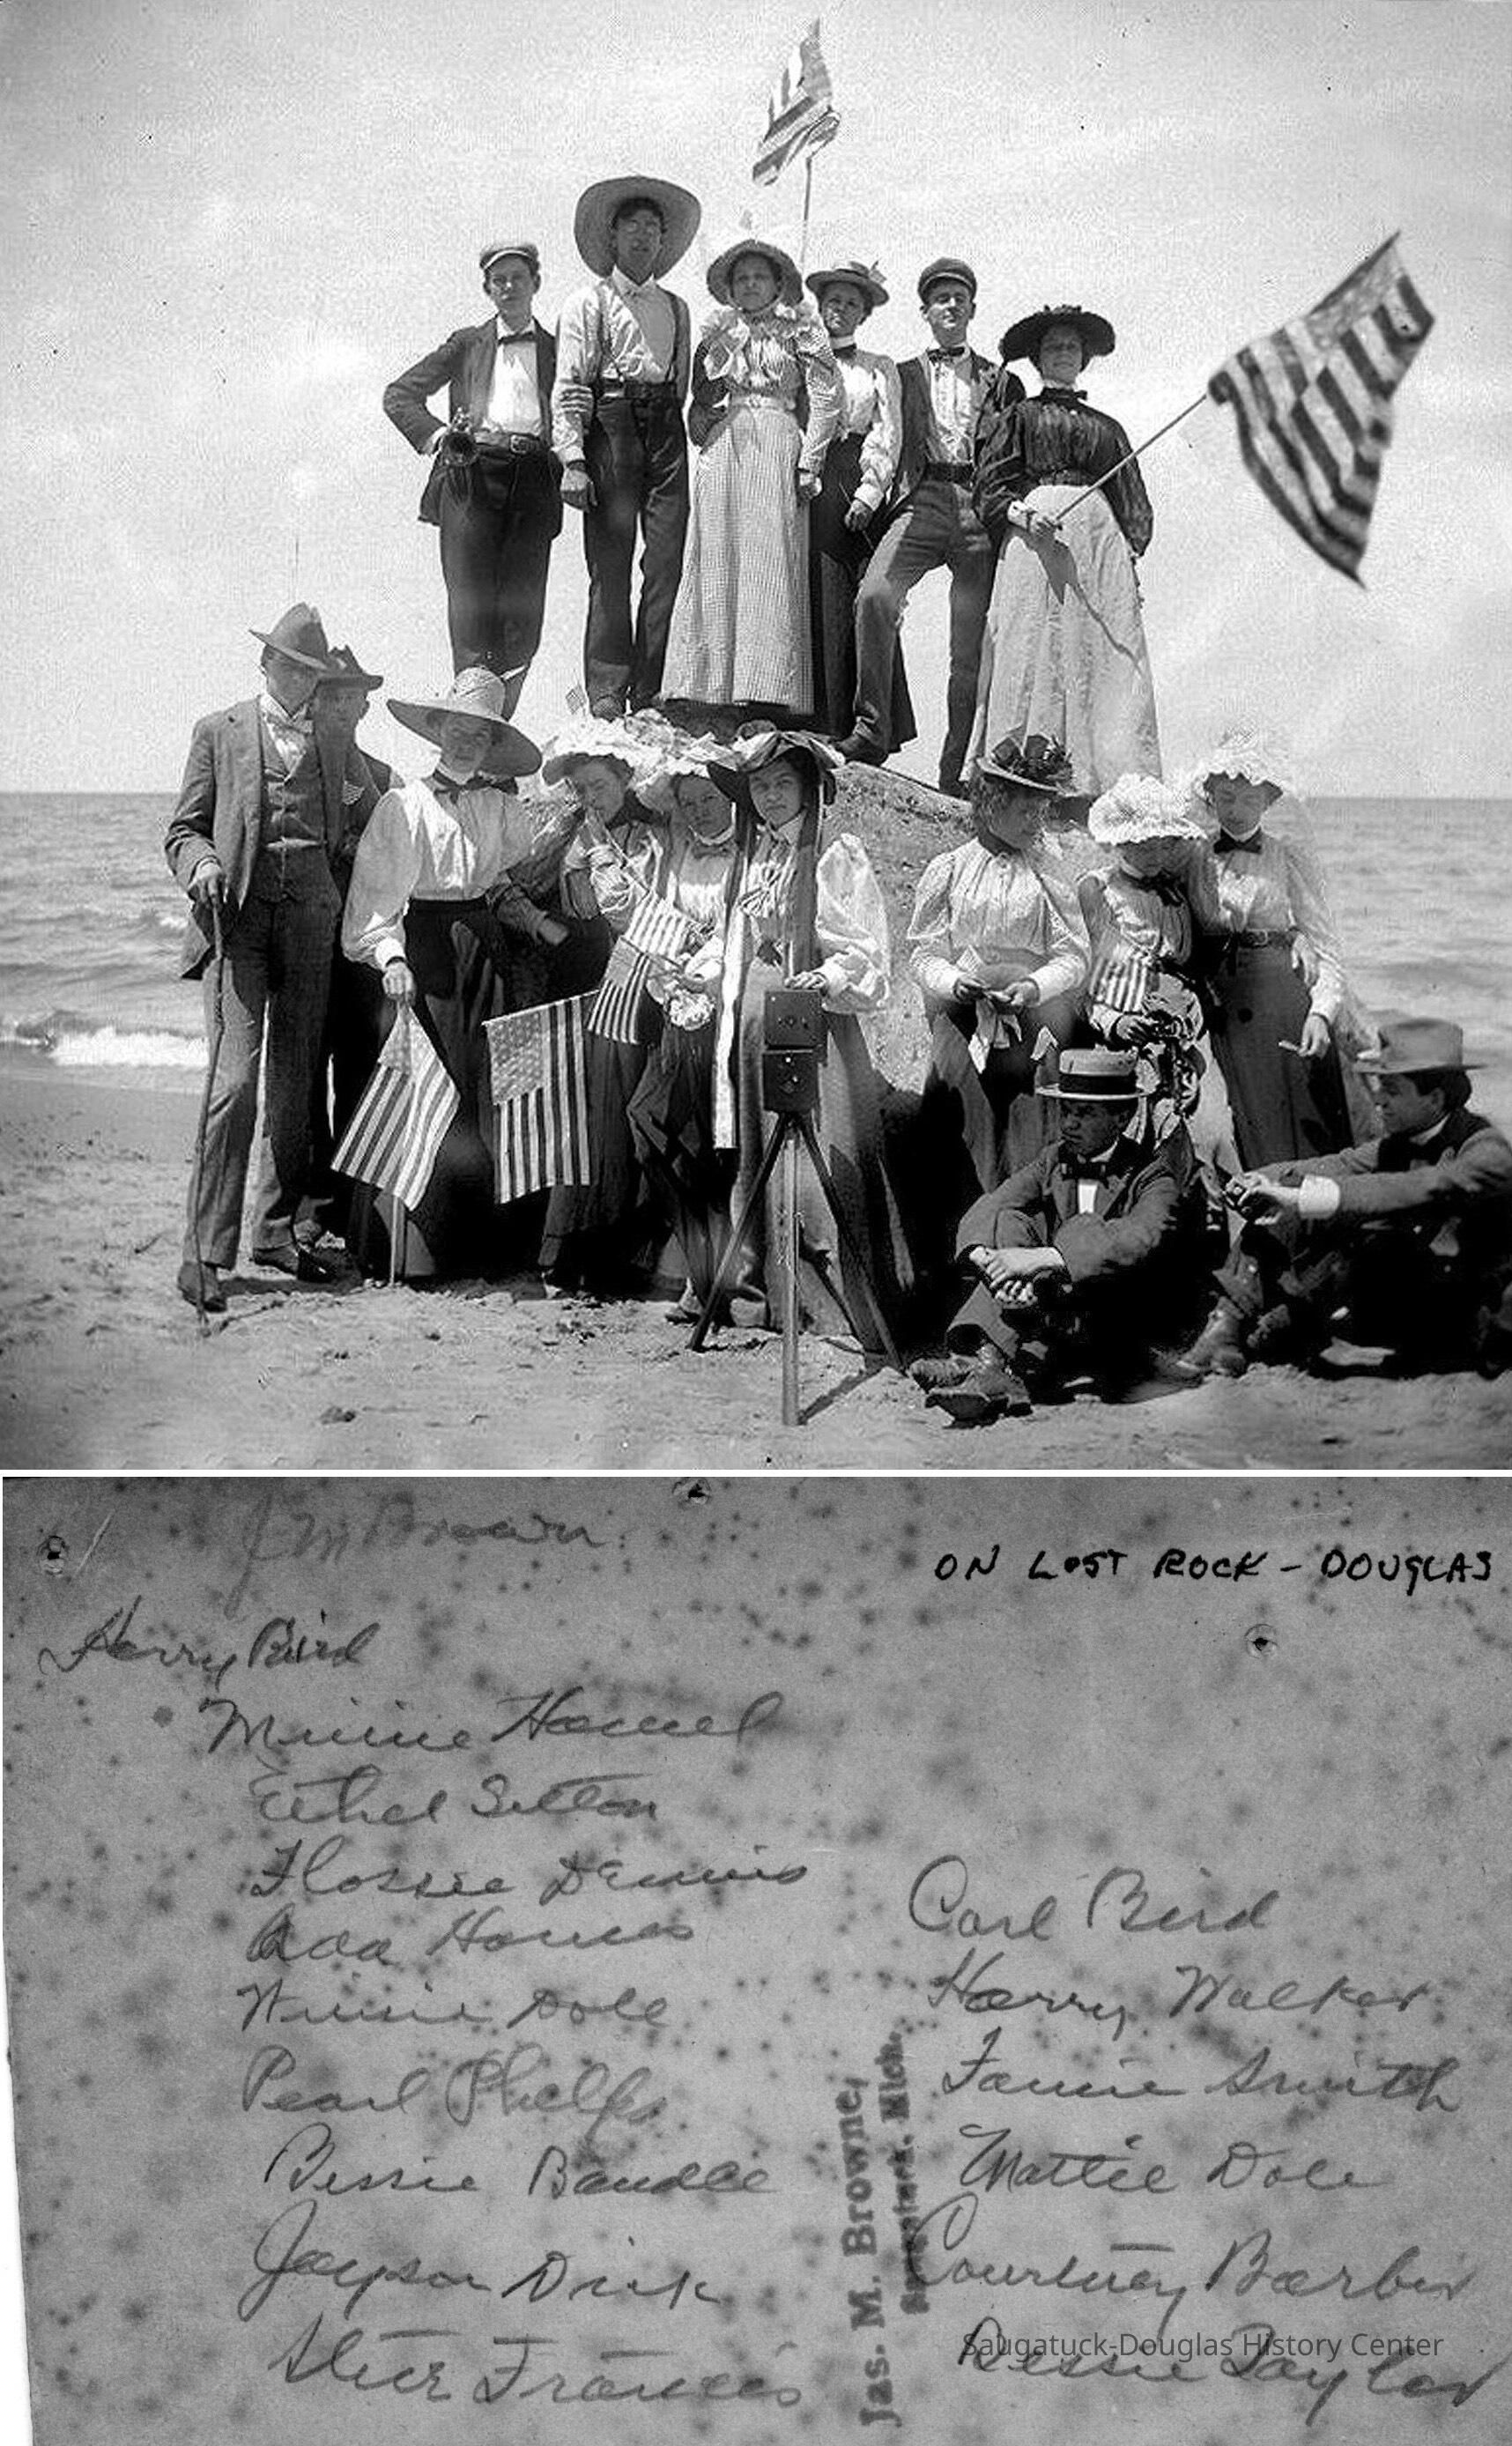 J M Brown
ON LOST ROCK - DOUGLAS
Harry Bird
Minnie Hamel
Ethel Sutton
Flossie Dennis
Ada Homes
Winnie Dole
Pearl Phelps
Bessie Bandle
Jayson Dick
Francis
Carl Bird
Harry Walker
Fannie Smith
Mattie Dole
Courtney Barber
Bessie Taylor
Jas. M. Browne,
Saugatuck, Mich.
Saugatuck-Douglas History Center